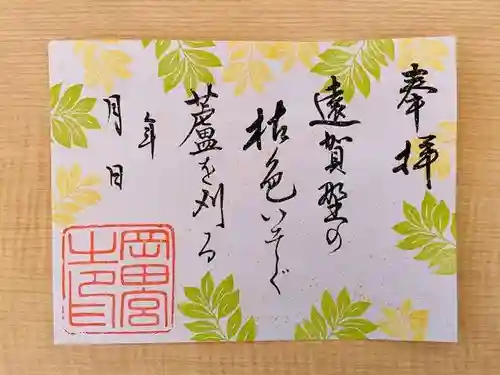 奉拝
遠賀野の
枯色いそぐ
蘆を刈る
年
月日
岡田宮